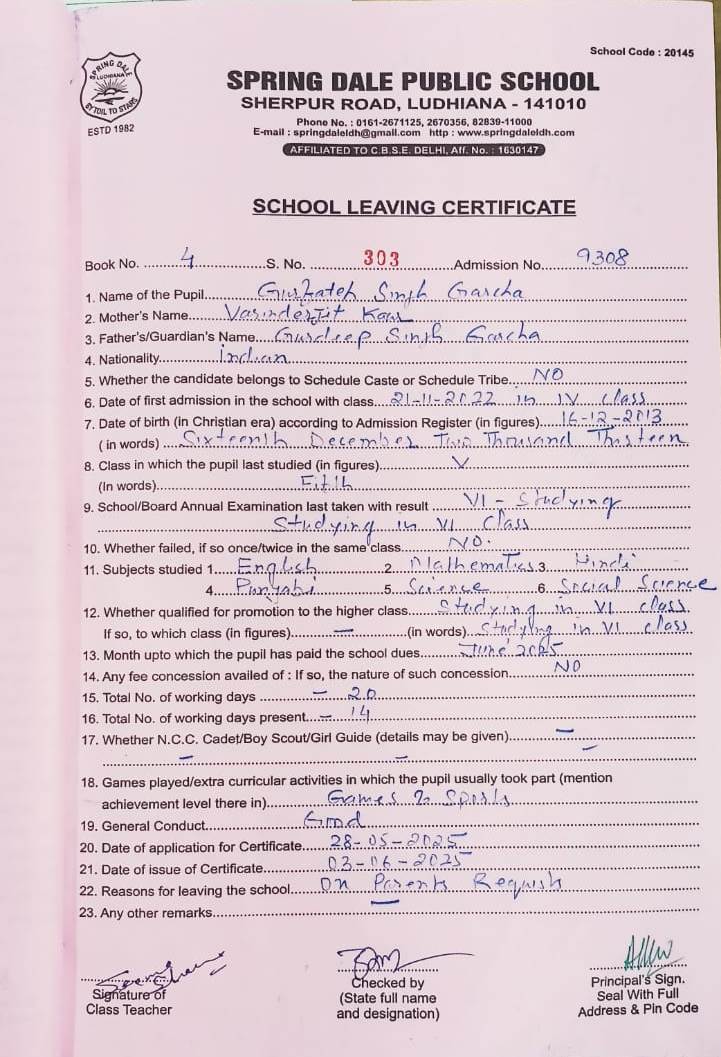 School Code : 20145
SPRING DALE
LUDHIANA
BY TOIL TO STARS
ESTD 1982
SPRING DALE PUBLIC SCHOOL
SHERPUR ROAD, LUDHIANA - 141010
Phone No. : 0161-2671125, 2670356, 82839-11000
E-mail : springdaleldh@gmail.com http : www.springdaleldh.com
AFFILIATED TO C.B.S.E. DELHI, Aff. No. : 1630147
SCHOOL LEAVING CERTIFICATE
Book No. 4 S. No. 303 Admission No. 9308
1. Name of the Pupil Gurfateh Singh Garcha
2. Mother's Name Varinderjit Kaur
3. Father's/Guardian's Name Gurdeep Singh Garcha
4. Nationality Indian
5. Whether the candidate belongs to Schedule Caste or Schedule Tribe. NO
6. Date of first admission in the school with class. 21-11-2022 in IV class
7. Date of birth (in Christian era) according to Admission Register (in figures) 16-12-2013
( in words) Sixteenth December Two Thousand Thirteen
8. Class in which the pupil last studied (in figures) V
(In words) Fifth
9. School/Board Annual Examination last taken with result VI - Studying
Studying in VI Class
10. Whether failed, if so once/twice in the same class. NO.
11. Subjects studied 1. English 2. Mathematics 3. Hindi
4. Punjabi 5. Science 6. Social Science
12. Whether qualified for promotion to the higher class Studying in VI class
If so, to which class (in figures) — (in words) Studying in VI class
13. Month upto which the pupil has paid the school dues June' 2025
14. Any fee concession availed of : If so, the nature of such concession NO
15. Total No. of working days — 20
16. Total No. of working days present — 14
17. Whether N.C.C. Cadet/Boy Scout/Girl Guide (details may be given) —
— — —
18. Games played/extra curricular activities in which the pupil usually took part (mention
achievement level there in) Games & Sports
19. General Conduct Good
20. Date of application for Certificate 28-05-2025
21. Date of issue of Certificate 03-06-2025
22. Reasons for leaving the school On Parents Request
23. Any other remarks —
Signature of
Class Teacher
Checked by
(State full name
and designation)
Principal's Sign.
Seal With Full
Address & Pin Code